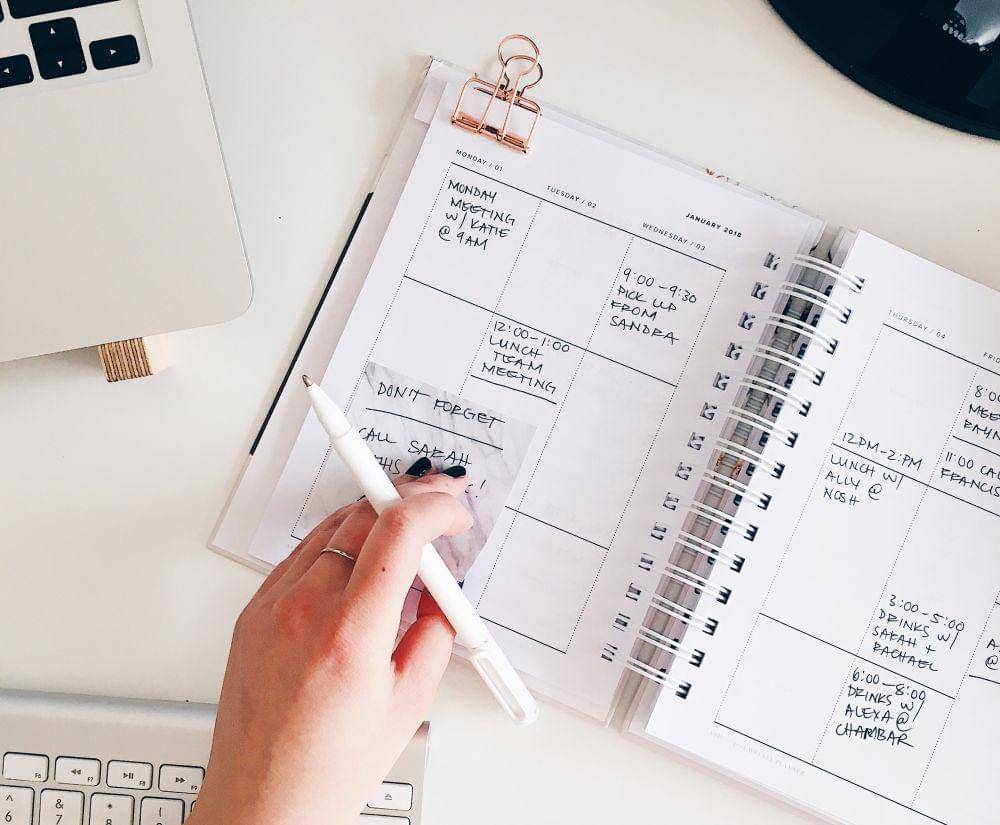 MONDAY / 01
MONDAY
MEETING
W/ KATIE
@ 9AM
TUESDAY / 02
12:00-1:00
LUNCH
TEAM
MEETING
JANUARY 2018
WEDNESDAY / 03
9:00-9:30
PICK UP
FROM
SANDRA
DON'T FORGET
CALL SARAH
THIS
!
THURSDAY / 04
12PM-2PM
LUNCH W/
ALLY @
NOSH
8:0
MEE
11:00 CAL
FRANCIS
3:00-5:00
DRINKS W/
SARAH +
RACHAEL
6:00-8:00
DRINKS W/
ALEXA @
CHAMBAR
@
F6
F7
F8
F9
6
& 7
* 8
(